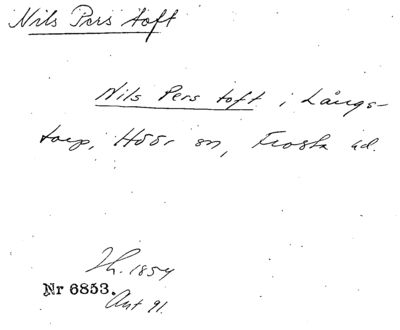 Nils Pers toft
Nils Pers toft i Långs-
torp, Höör sn, Frosta hd.
Lh. 1854
Nr 6853.
Ant 91.